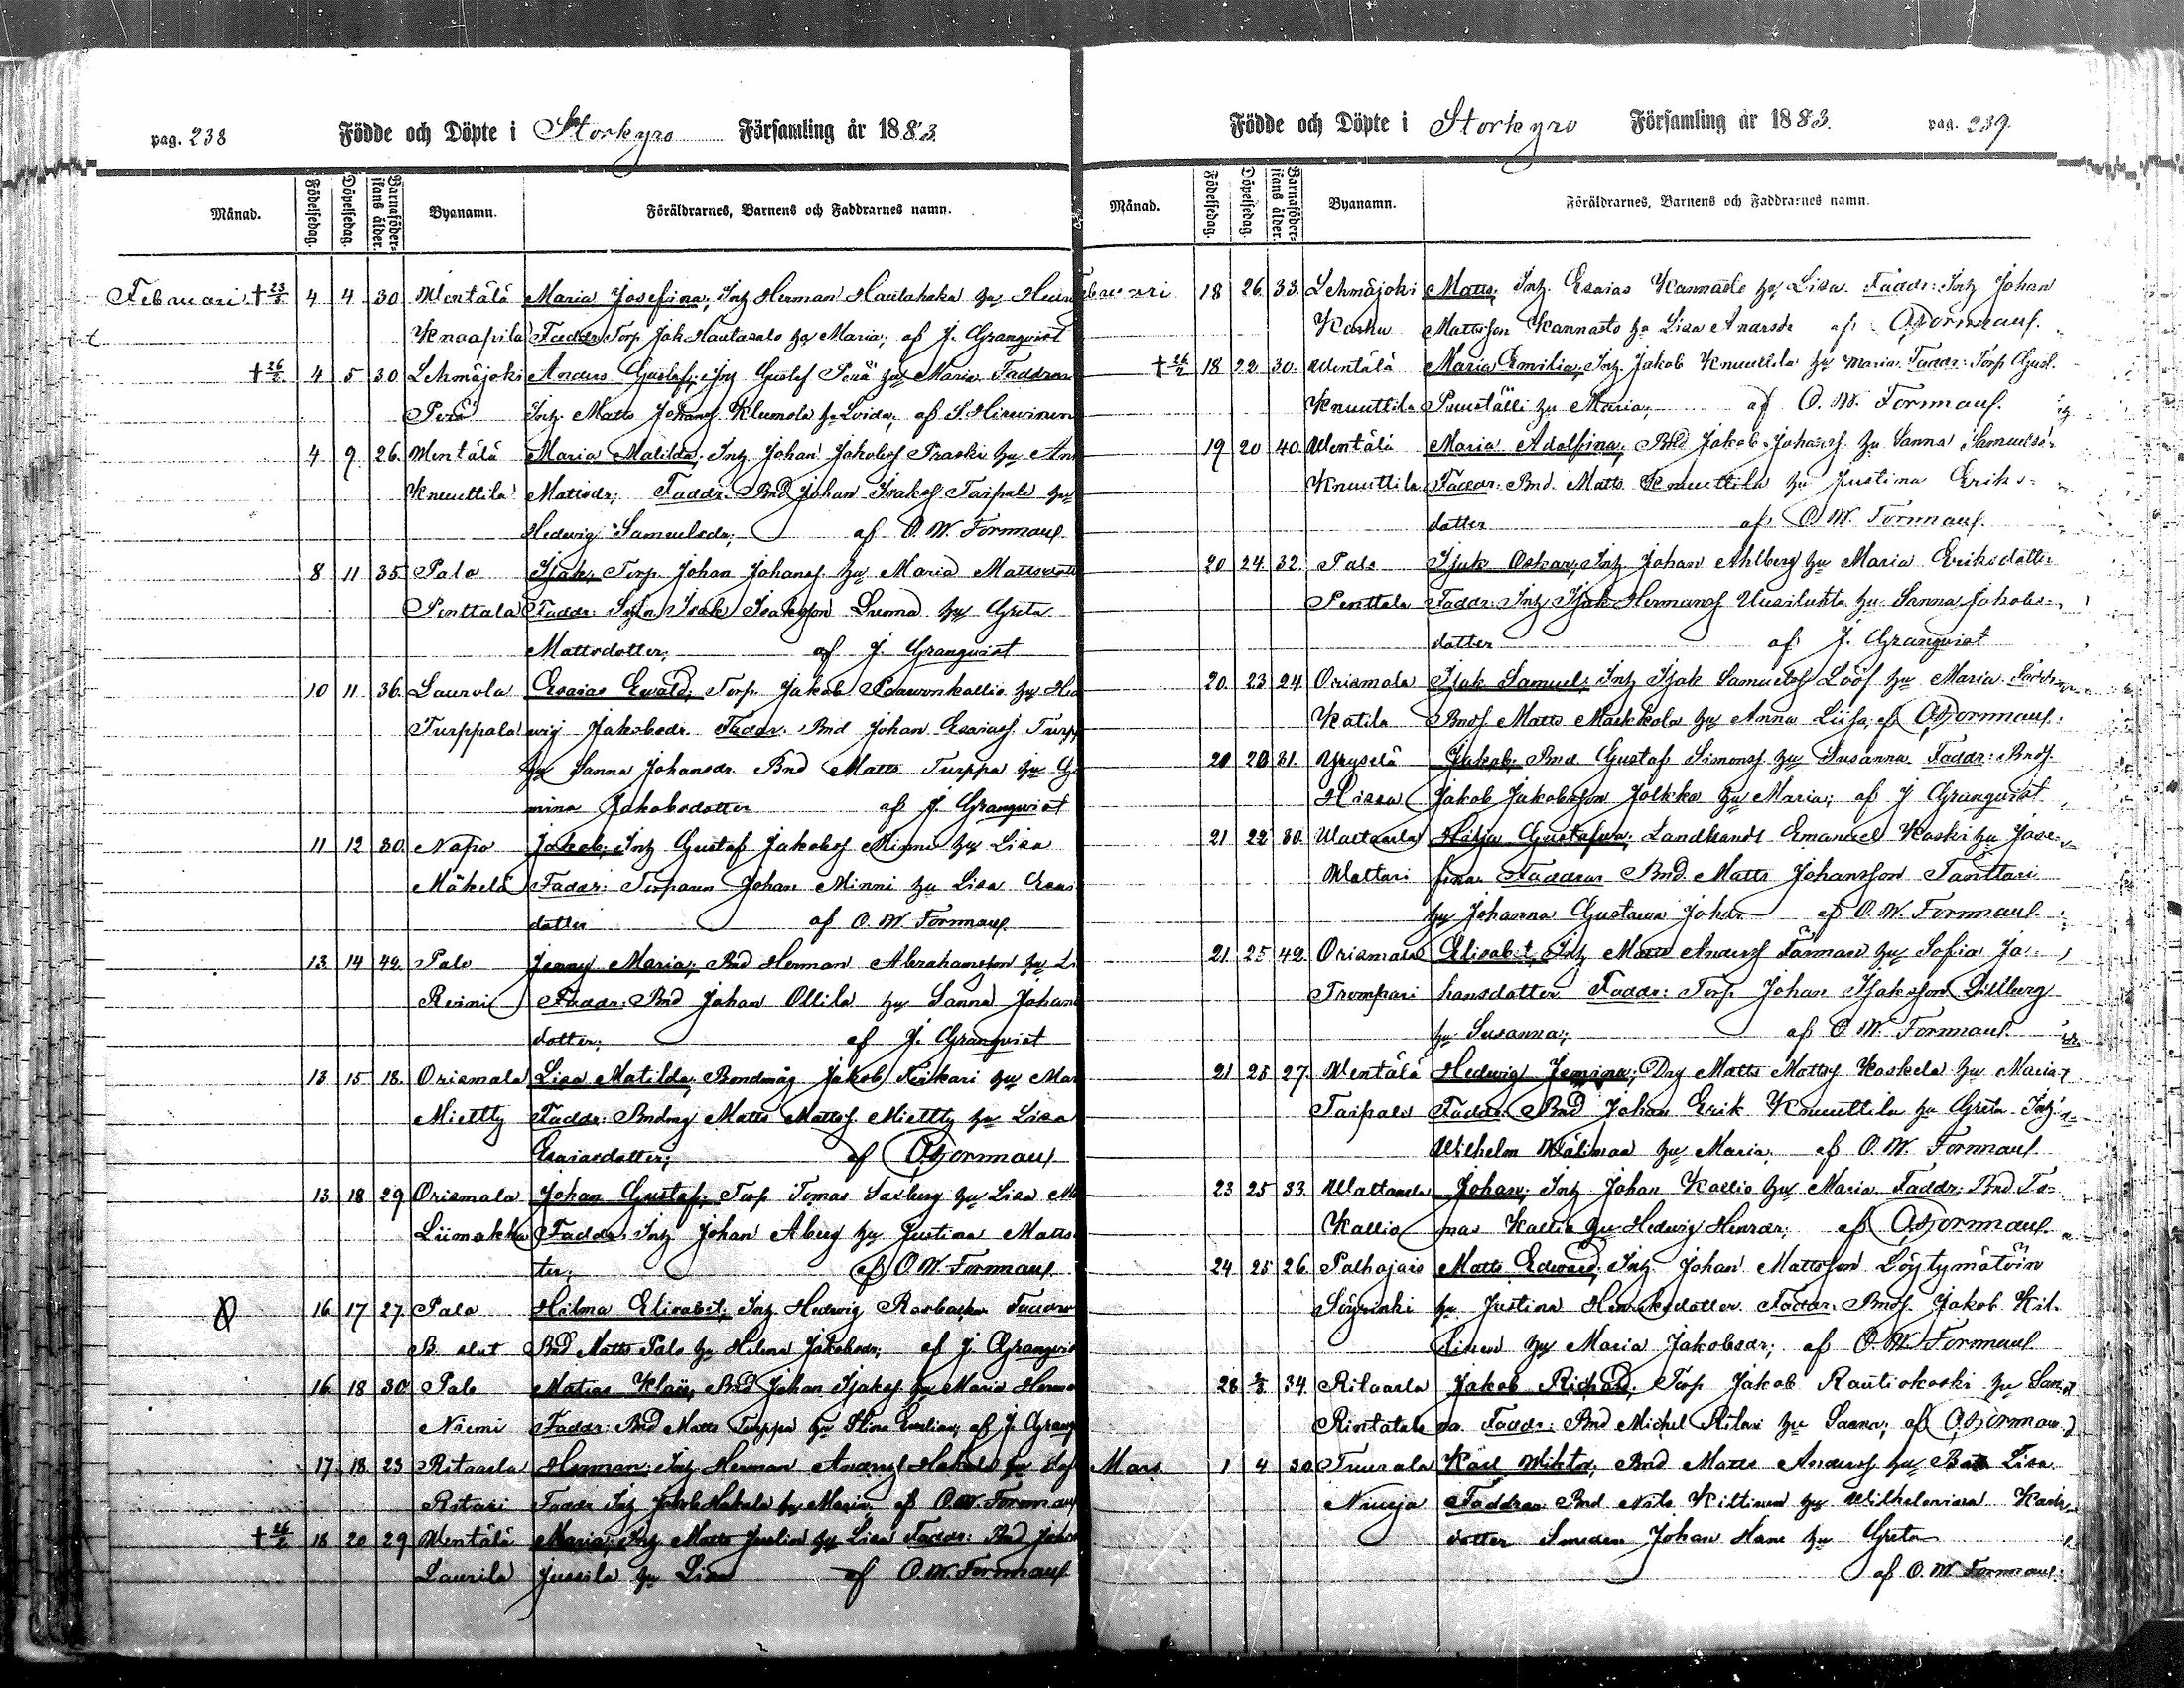 pag. 238 Födde och Döpte i Storkyro Församling år 1883.
Månad. Födelsedag. Döpelsedag. Barnaföderskans ålder. Byanamn. Föräldrarnes, Barnens och Faddrarnes namn.
Februari † 23/2 4 4 30 Wentälä Maria Josefina; Inh Herman Hautahaka hu
Knaapila Faddr. Torp. Jak. Hautasalo hu Maria; af J. Granqvist
† 26/2 4 5 30 Lehmäjoki Anders Gustaf; Inh Gustaf Perä hu Maria Faddrar
Perä Inh. Matts Johans. Klemola hu Lovisa; af
4 9 26. Wentälä Maria Matilda; Inh Johan Jakobss Praski hu
Knuuttila Mattsdr; Faddr. Bnd Johan Isaks Taipale hu
Hedwig Samuelsdr; af O. W. Formanf.
8 11 35 Palo Isak; Torp. Johan Johans hu Maria
Penttala Faddr: Isak Isaksson hu Greta
Mattsdotter; af J. Granqvist
10 11 36. Laurola Esaias Ewald; Torp. Jakob Paawonkallio hu Hed
Turppala wig Jakobsdr. Faddr. Bnd Johan Esaiass. Turpp
hu Sanna Johansdr. Bnd Matts Turppa hu
mina Jakobsdotter af J. Granqvist
11 12 30. Napo Jakob; Inh Gustaf Jakobss Minni hu Lisa
Mäkelä Faddr: Torparen Johan Minni hu Lisa
dotter af O. W. Formanf.
13 14 42. Palo Jenny Maria; Bnd Herman Abrahamsson hu
Rinni Faddr. Bnd Johan Ollila hu Sanna Johans
dotter; af J. Granqvist
13 15 18. Orismala Lisa Matilda; Bondmåg Jakob hu
Mietty Faddr: Bndmg Matts Mattss. Mietty hu Lisa
Esaiasdotter; af O. Formanf.
13. 18 29 Orismala Johan Gustaf; Torp Tomas Saxberg hu Lisa
Liimakka Faddr. Inh Johan Åberg hu Justina Matts
ter; af O. W. Formanf.
16. 17 27. Palo Hilma Elisabet; Inh Hedwig Faddrar
B. slut Bnd Matts Palo hu Helena Jakobsdr; af J. Granqvist
16. 18 30. Palo Matias; Bnd Johan Isaks hu Maria
Niemi Faddr: Bnd Matts Turppa hu Stina Emelia; af J. Granq
17. 18 23 Ritaarla Herman; Inh Herman Anderss Hakala hu
Ritari Faddr Inh Jakob Hakala hu Maria; af O. W. Formanf
† 26/2 18 20 29 Wentälä Maria; Inh Matts hu Lisa Faddr: Bnd
Laurila Jussila hu Lisa af O. W. Formanf
Födde och Döpte i Storkyro Församling år 1883. pag. 239.
Månad. Födelsedag. Döpelsedag. Barnaföderskans ålder. Byanamn. Föräldrarnes, Barnens och Faddrarnes namn.
18 26. 33. Lehmäjoki Matts; Inh. Esaias Kannasto hu Lisa. Faddr: Inh Johan
Kosku Mattsson Kannasto hu Lisa Andersdr af O. Formanf.
† 26/2 18 22 30. Wentälä Maria Emilia; Inh Jakob Knuuttila hu Maria. Faddr: Torp Gust.
Knuuttila hu Maria; af O. W. Formanf.
19 20 40. Wentälä Maria Adolfina; Bnd Jakob Johans. hu Sanna Samuelsd:
Knuuttila Faddr. Bnd. Matts Knuuttila hu Justina Eriks-
dotter af O. W. Formanf.
20 24. 32. Palo Isak Oskar; Inh Johan Ahlberg hu Maria Eriksdotter
Penttala Faddr: Inh Isak Hermans Uusiluhta hu Sanna Jakobs-
dotter af J. Granqvist
20. 23 24. Orismala Isak Samuel; Inh Isak Samuels Lööf hu Maria
Katila Matts Markkola hu Anna Lisa; af O. Formanf.
20 23 31. Yryselä Jakob; Bnd Gustaf Simons hu Susanna Faddr:
Hissa Jakob Jakobsson Jolkka hu Maria; af J. Granqvist
21 22 30. Waltaarla Gustafva; Emanuel Koski hu Jose-
Waltari fina Faddrar Bnd. Matts Johansson Tanttari
hu Johanna Gustava af O. W. Formanf.
21 25 42. Orismala Elisabet; Inh Matts Anderss Färman hu Sofia Jo-
Trompari hansdotter Faddr: Torp. Johan Isaksson
hu Susanna; af O. W. Formanf.
21 25 27. Wentälä Hedwig; Drg Matts Mattss Koskela hu Maria
Taipale Faddr. Bnd Johan Erik Knuuttila hu Greta Inh
Wilhelm Wälimaa hu Maria; af O. W. Formanf
23 25 33. Waltaarla Johan; Inh Johan Kallio hu Maria Faddr: Bnd To-
Kallio mas Kallio hu Hedwig Henrdr; af O. Formanf.
24 25 26. Palhojais Matts Edward; Inh. Johan Mattsson Löytymätöin
Söyrinki hu Justina Henriksdotter Faddr. Jakob Kil-
linen hu Maria Jakobsdr; af O. W. Formanf
28 2/3 34 Ritaarla Jakob Richard; Torp Jakob Rautiokoski hu San-
Rintatalo na Faddr: Bnd Michel Ritari hu Sanna; af O. Formanf.
Mars 1 4 30 Tuurala Karl Wiktor; Bnd Matts Anderss hu Lisa
Niueja Faddrar Bnd Nils Kiltinen hu Wilhelmina Karls-
dotter Smeden Johan Hane hu Greta
af O. W. Formanf.